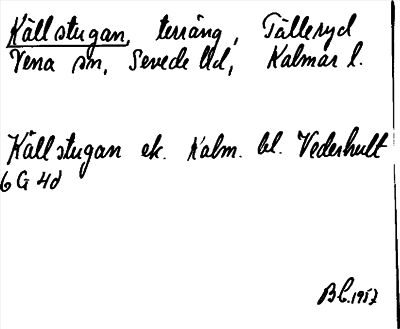 Källstugan, terräng, Tälleryd
Vena sn, Sevede hd, Kalmar l.
Källstugan ek. Kalm. bl. Vederhult
6 G 4d
B C. 1957